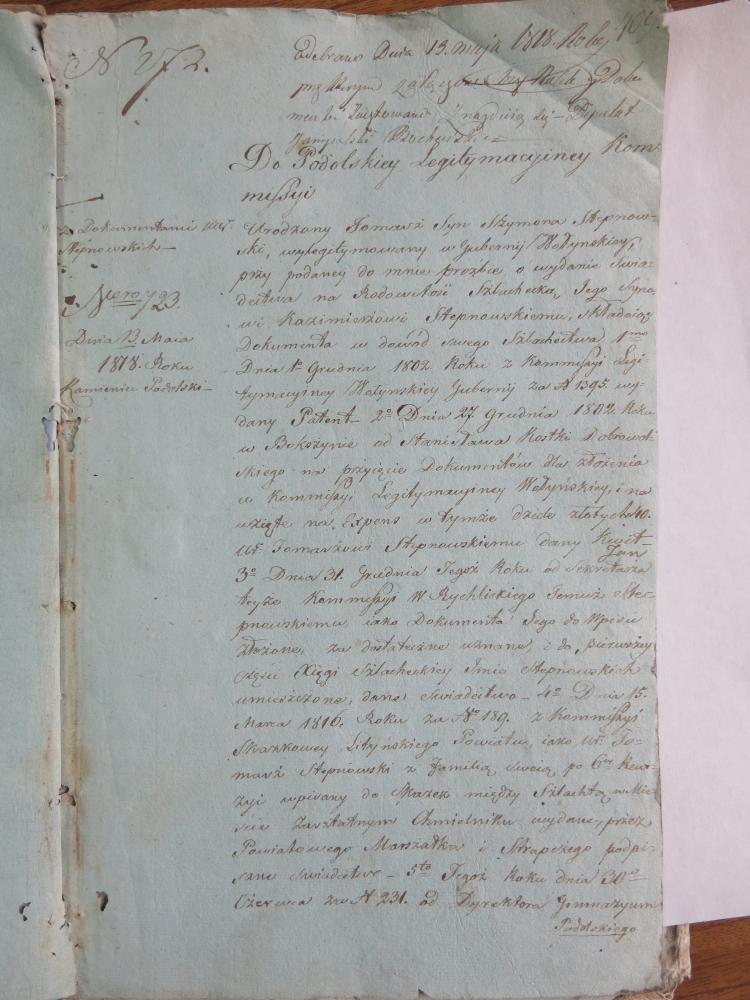 N 272.
Odebrano Dnia 13. maja 1818. Roku
przy którym
Deputat
Do Podolskiey Legitymacyiney Kom-
missyi
z Dokumentami Ur.
Stepnowskich —
Nero 723.
Dnia 13. Maia
1818. Roku
Kamieniec Podolski —
Urodzony Tomasz Syn Szymona Stepnow-
ski, wylegitymowany w Gubernij Wołynskiey,
przy podaney do mnie proźbie, o wydanie Swia-
dectwa na Rodowitość Szlachecką, Jego Syno-
wi Kazimierzowi Stepnowskiemu, składaiąc
Dokumenta w dowód swego Szlachectwa 1mo
Dnia 1o Grudnia 1802. Roku z Kommissyi Legi-
tymacyiney Wołynskiey Gubernij za N 1395. wy-
dany Patent — 2o Dnia 27. Grudnia 1802. Roku
w Bokszynie od Stanisława Kostki Dobrowol-
skiego na przyięcie Dokumentów dla złożenia
w Kommissyi Legitymacyiney Wołyńskiey, i na
wzięte na Expens w tymże dziele złotych 40.
Ur. Tomaszowi Stepnowskiemu dany Kwit —
3o Dnia 31. Grudnia Tegoż Roku od Sekretarza
teyże Kommissyi W Rychlickiego Tomaszowi Step-
pnowskiemu iako Dokumenta Jego do Wywodu
złożone, za dostateczne uznane, i do pierwszey
części Xięgi Szlacheckiey Imie Stepnowskich
umieszczone, dane Swiadectwo — 4o Dnia 15.
Marca 1816. Roku za No 189. z Kommissyi
Skazkowey Lityńskiego Powiatu, iako Ur. To-
masz Stepnowski z Familią swoią po 6ey Rewi-
zyi wpisany do Skazek między Szlachtą w Mie-
ście Zasztatnym Chmielniku wydane, przez
Powiatowego Marszałka i Strapczego podpi-
sane Swiadectwo — 5to Tegoż Roku dnia 30o
Czerwca za N 231. od Dyrektora Gimnazyum
Podolskiego